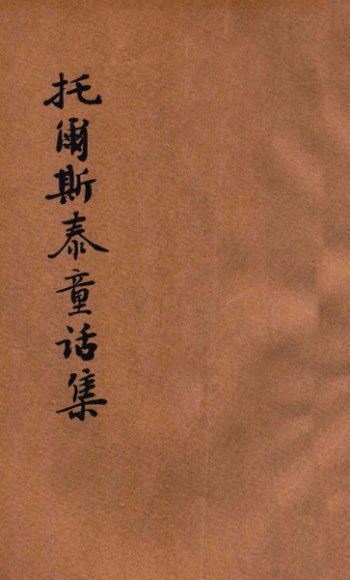 托爾斯泰童话集